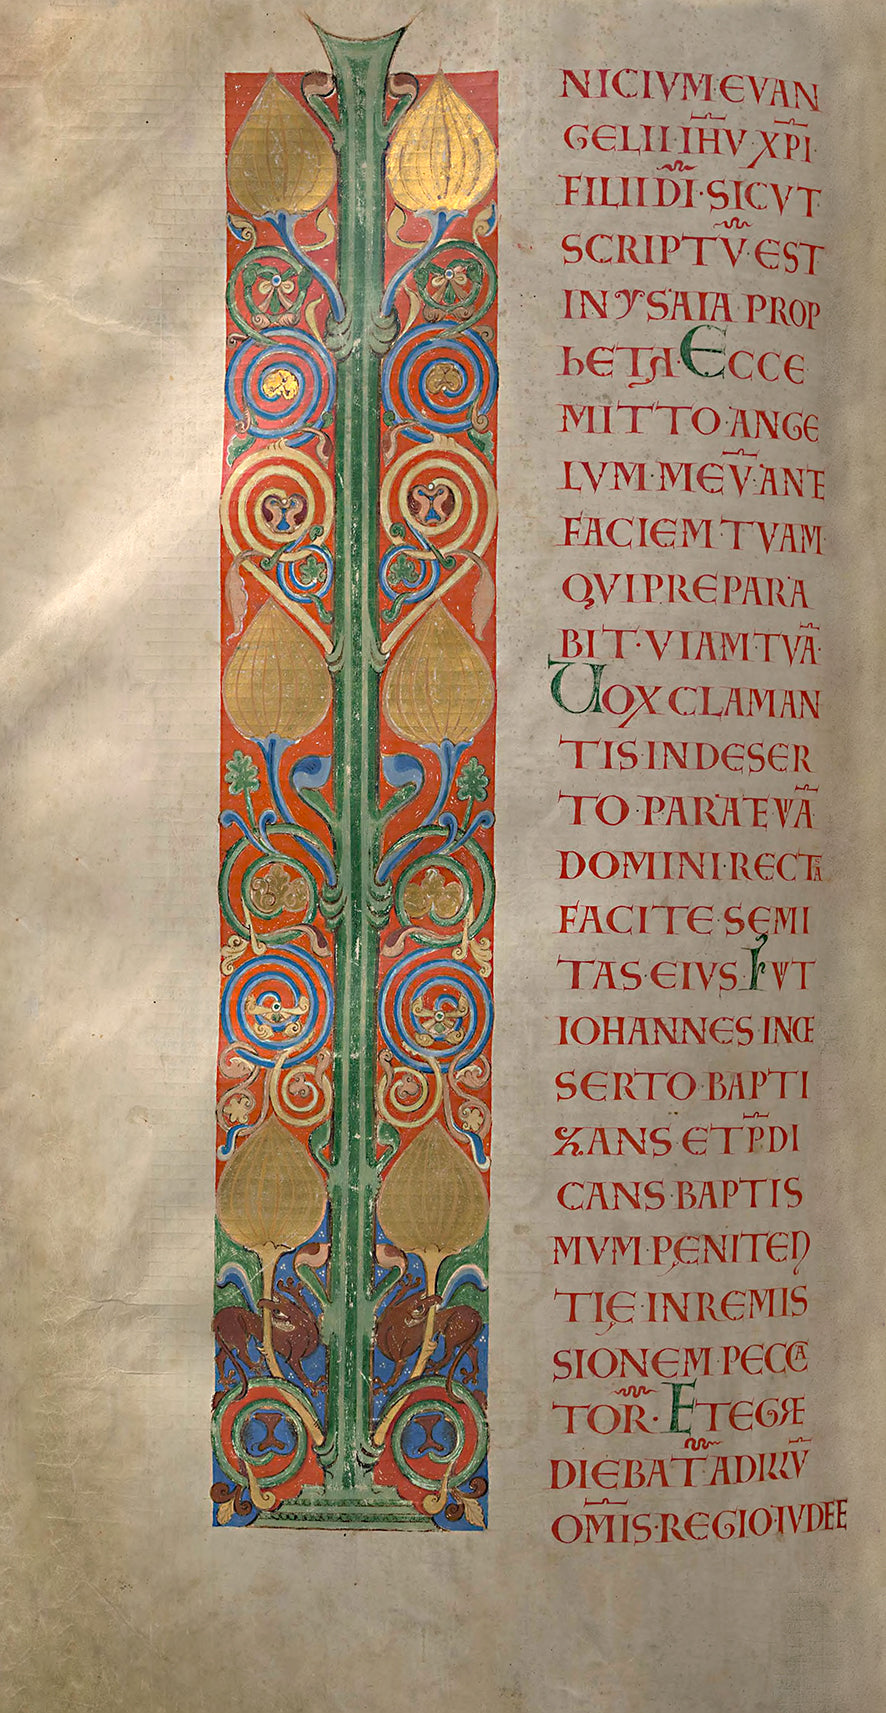 NICIVM·EVAN
GELII·IH̅V·XP̅I·
FILII D̅I·SICVT
SCRIPTV̅·EST
IN YSAIA PROP
hETA·ECCE
MITTO·ANGE
LVM·MEV̅·ANT
FACIEM·TVAM·
QVI PREPARA
BIT·VIAM·TVA̅·
VOX CLAMAN
TIS·IN DESER
TO·PARATE VIA̅
DOMINI·RECTA
FACITE·SEMI
TAS·EIVS·FVIT
IOHANNES IN DE
SERTO·BAPTI
ZANS ET P̅DI
CANS·BAPTIS
MVM·PĘNITEN
TIĘ·IN REMIS
SIONEM·PECCA
TOR̅·ET EGRE
DIEBAT̅·AD ILLV̅
OM̅IS·REGIO·IVDEE